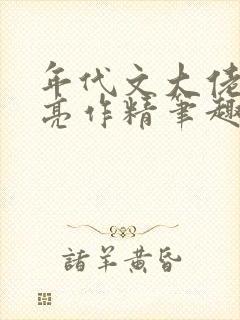 年代文大佬
亮作精笔趣
諸羊黄昏